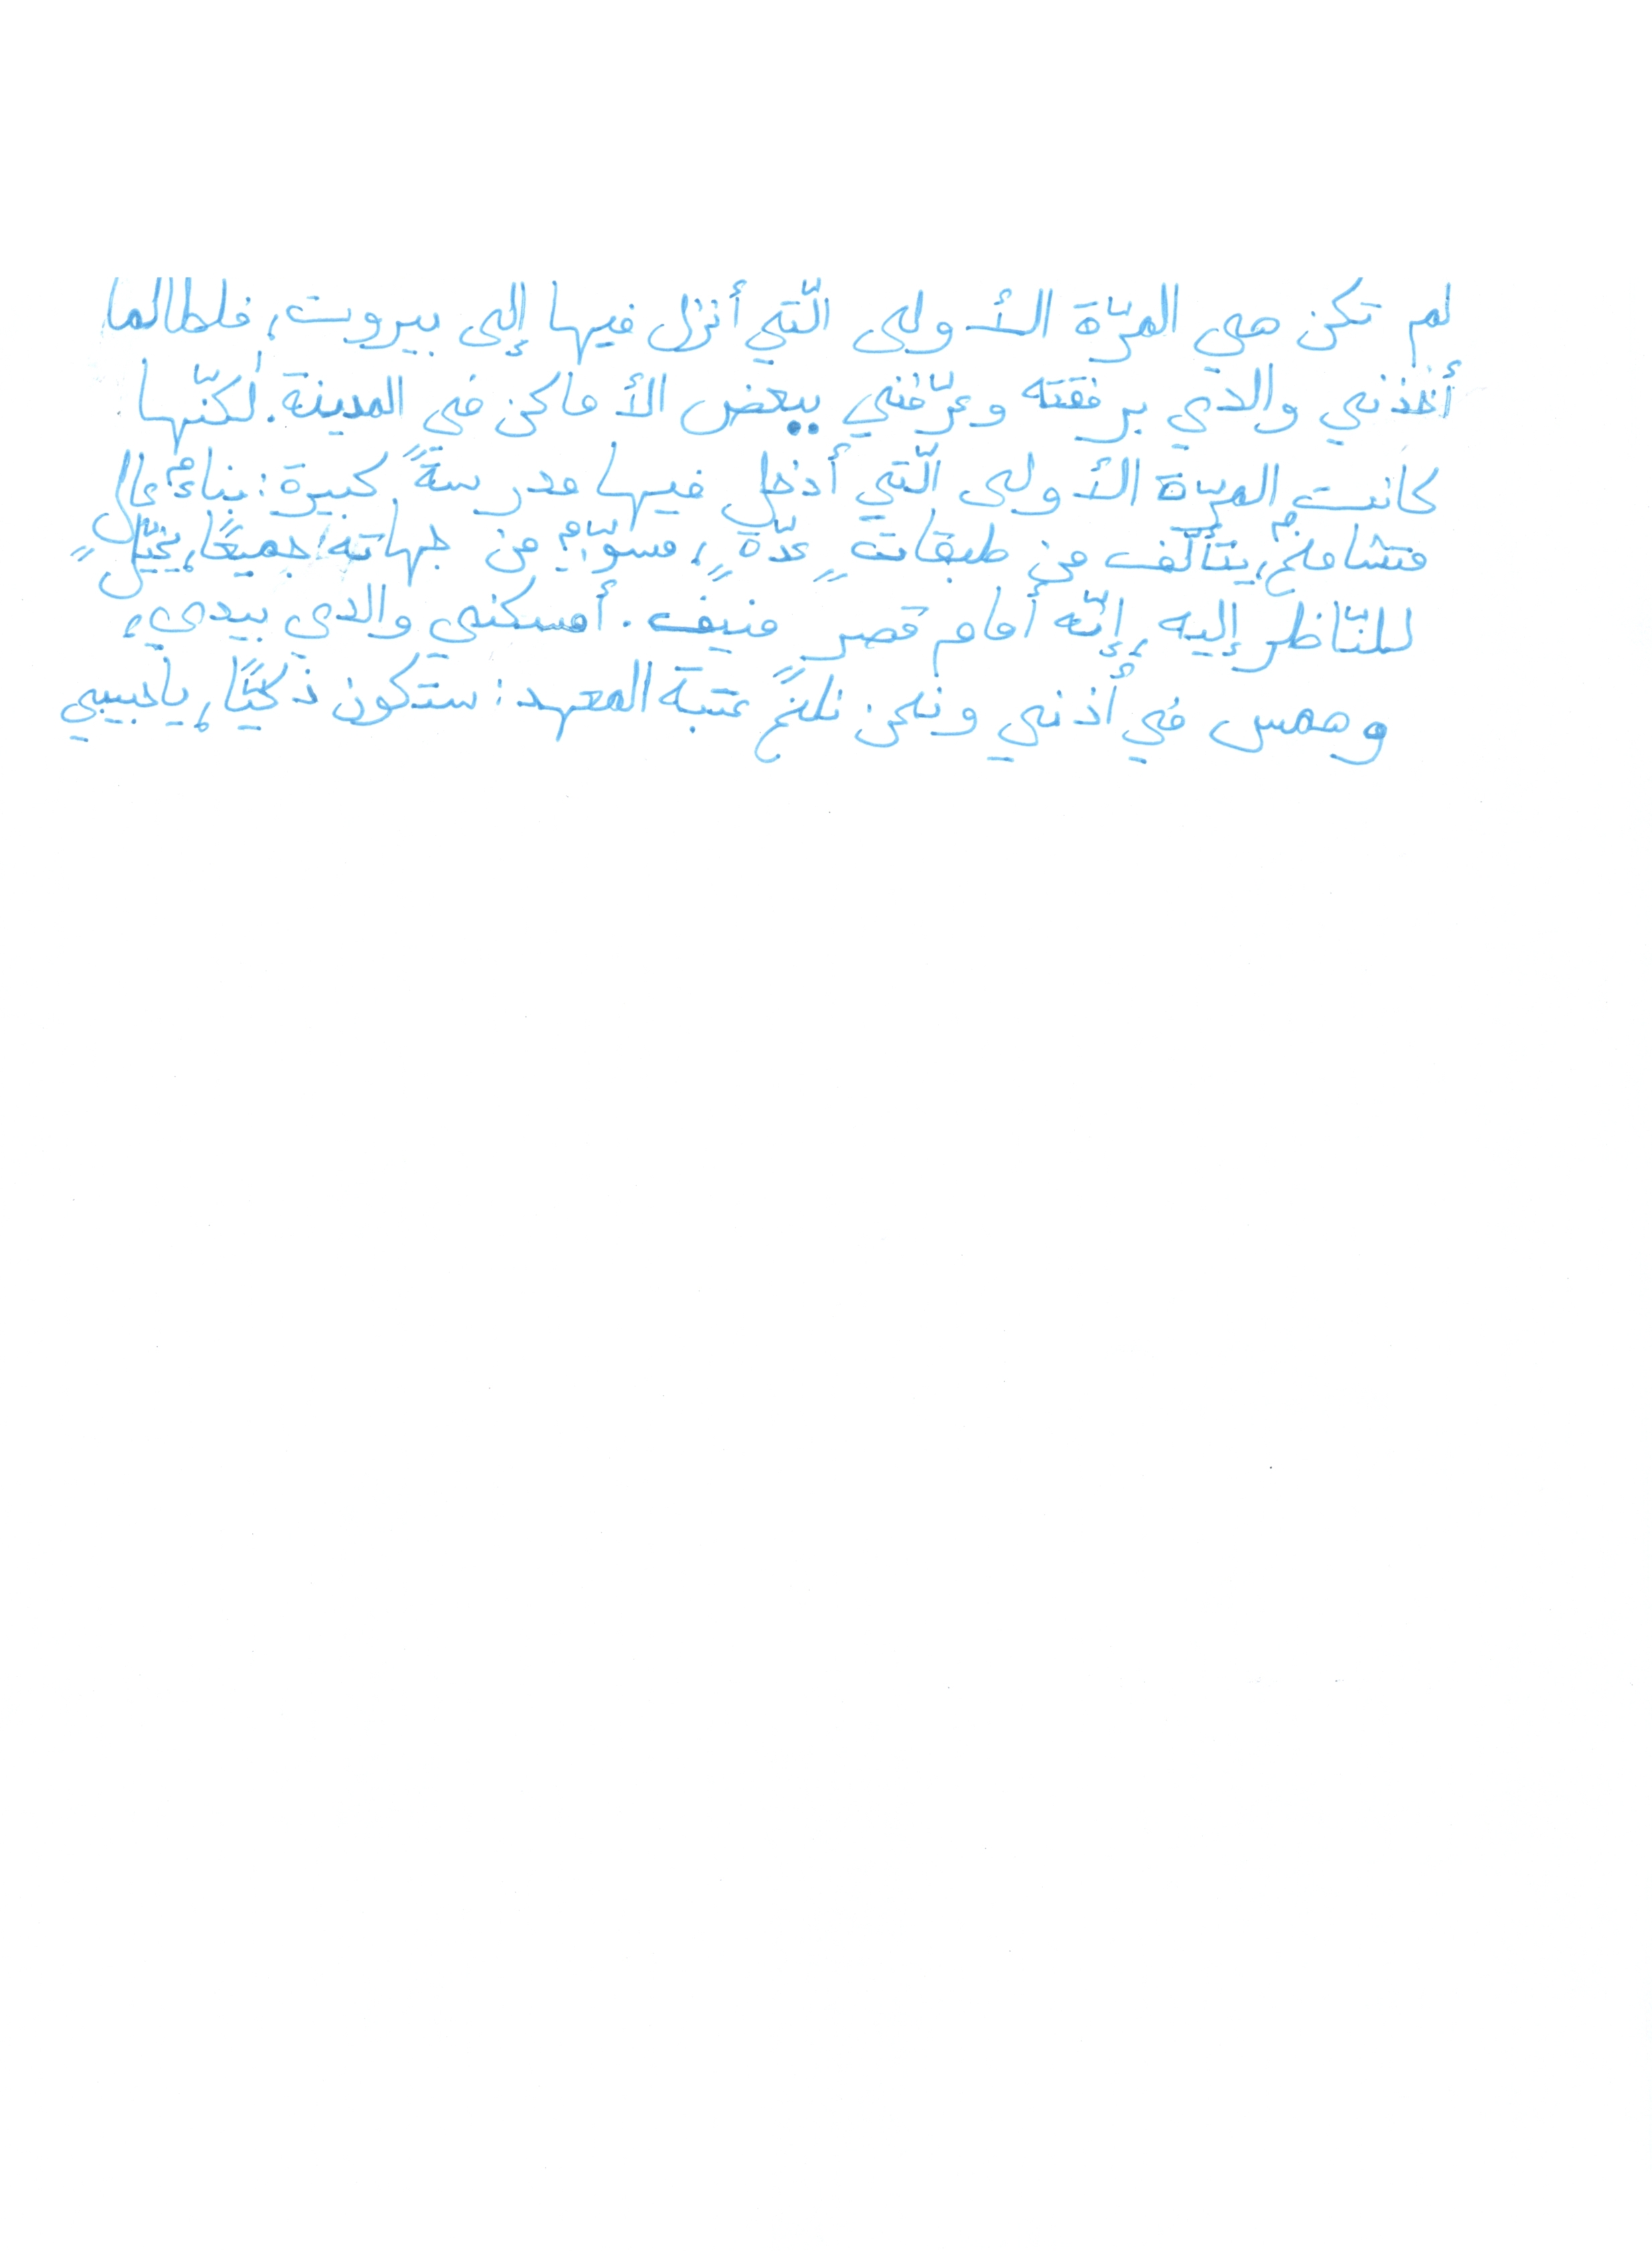 لم تكن هي المرّة الأولى الّتي أنزل فيها إلى بيروت، فلطالما
أخذني والدي برفقته وعرّفني ببعض الأماكن في المدينة. لٰكنّها
كانت المرّة الأولى الّتي أدخل فيها مدرسةً كبيرة: بناءٌ عالٍ
متشامخٌ، يتألّف من طبقاتٍ عدّةٍ، مسوّرٌ من جهاته جميعًا، يخيّل
للنّاظر إليه، إنّه أمام قصر منيف. أمسكني والدي بيدي،
وهمس في أذني ونحن نلجُ عتبة المعهد: ستكون ذكيًّا، يا حبيبي